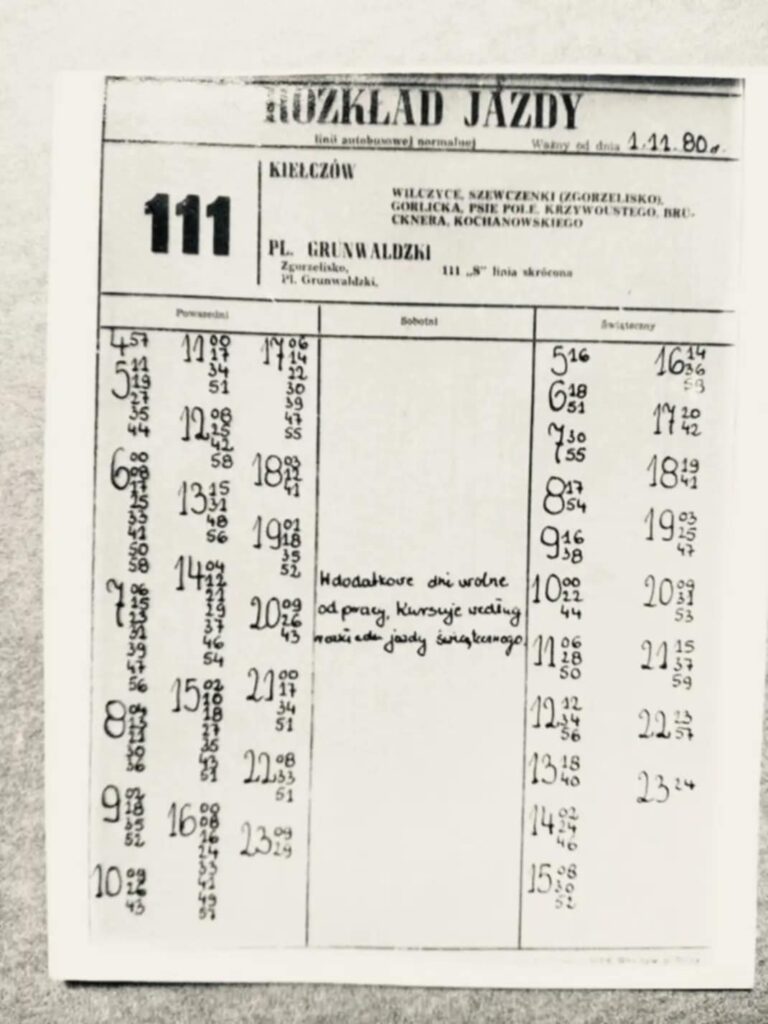 ROZKŁAD JAZDY
linii autobusowej normalnej
Ważny od dnia 1.11.80r.
111
KIEŁCZÓW
WILCZYCE, SZEWCZENKI (ZGORZELISKO),
GORLICKA, PSIE POLE, KRZYWOUSTEGO, BRU-
CKNERA, KOCHANOWSKIEGO
PL. GRUNWALDZKI
Zgorzelisko,
Pl. Grunwaldzki,
111 „S" linia skrócona
Powszedni
4 57
5 11 19 27 35 44
6 00 08 17 25 33 41 50 58
7 06 15 23 31 39 47 56
8 30
9 02 18 35 52
10 09 26 43
11 00 17 34 51
12 08 25 42 58
13 15 31 48 56
14 04 12 21 29 37 46 54
15 02 10 18 27 35 43 51
16 00 08 16 24 33 41 49 57
17 06 14 22 30 39 47 55
18 41
19 01 18 35 52
20 09 26 43
21 00 17 34 51
22 08 33 51
23 09 29
Sobotni
W dodatkowe dni wolne
od pracy, kursuje według
rozkładu jazdy świątecznego.
Świąteczny
5 16
6 18 51
7 30 55
8 17 54
9 16 38
10 00 22 44
11 06 28 50
12 12 34 56
13 18 40
14 02 24 46
15 08 30 52
16 14 36 59
17 20 42
18 19 41
19 03 25 47
20 09 31 53
21 15 37 59
22 23 57
23 24